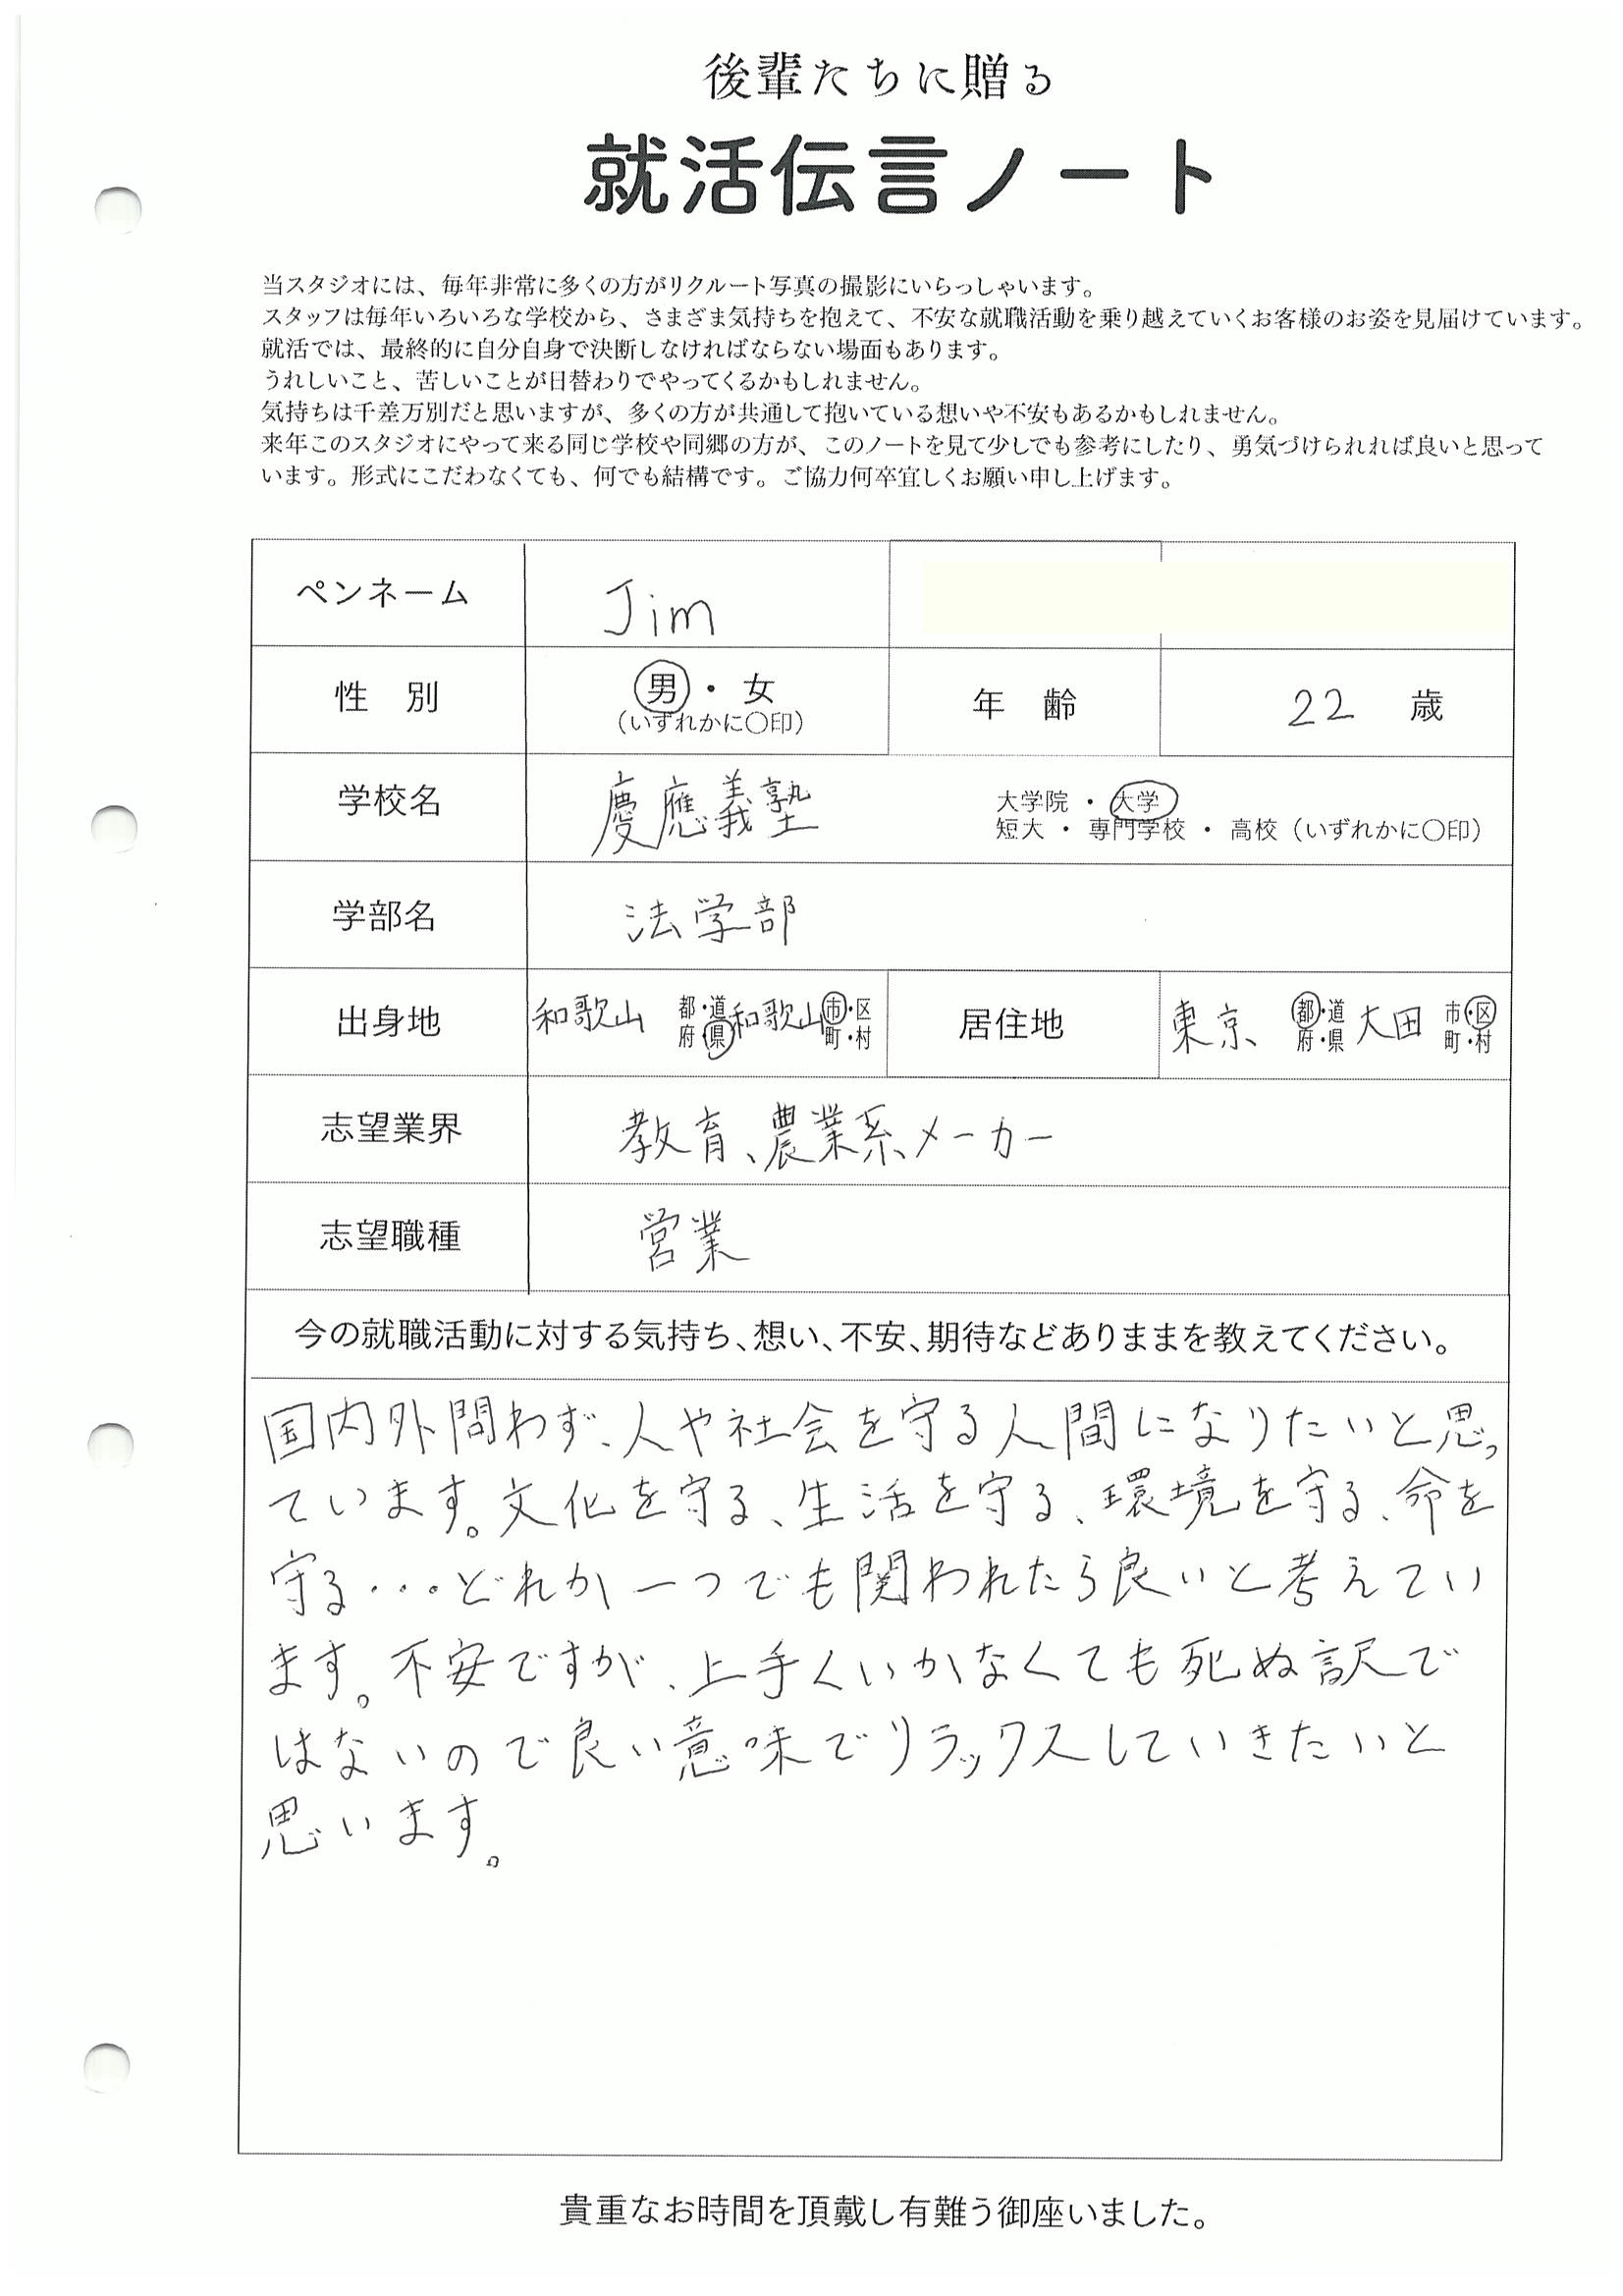 後輩たちに贈る
就活伝言ノート
当スタジオには、毎年非常に多くの方がリクルート写真の撮影にいらっしゃいます。
スタッフは毎年いろいろな学校から、さまざま気持ちを抱えて、不安な就職活動を乗り越えていくお客様のお姿を見届けています。
就活では、最終的に自分自身で決断しなければならない場面もあります。
うれしいこと、苦しいことが日替わりでやってくるかもしれません。
気持ちは千差万別だと思いますが、多くの方が共通して抱いている想いや不安もあるかもしれません。
来年このスタジオにやって来る同じ学校や同郷の方が、このノートを見て少しでも参考にしたり、勇気づけられれば良いと思って
います。形式にこだわなくても、何でも結構です。ご協力何卒宜しくお願い申し上げます。
ペンネーム Jim
性 別 男・女 年 齢 22 歳
(いずれかに○印)
学校名 慶應義塾 大学院 ・ 大学
短大 ・ 専門学校 ・ 高校(いずれかに○印)
学部名 法学部
出身地 和歌山 都・道 和歌山 市・区 居住地 東京 都・道 大田 市・区
府・県 町・村 府・県 町・村
志望業界 教育、農業系メーカー
志望職種 営業
今の就職活動に対する気持ち、想い、不安、期待などありままを教えてください。
国内外問わず、人や社会を守る人間になりたいと思っ
ています。文化を守る、生活を守る、環境を守る、命を
守る・・・どれか一つでも関われたら良いと考えてい
ます。不安ですが、上手くいかなくても死ぬ訳で
はないので良い意味でリラックスしていきたいと
思います。
貴重なお時間を頂戴し有難う御座いました。